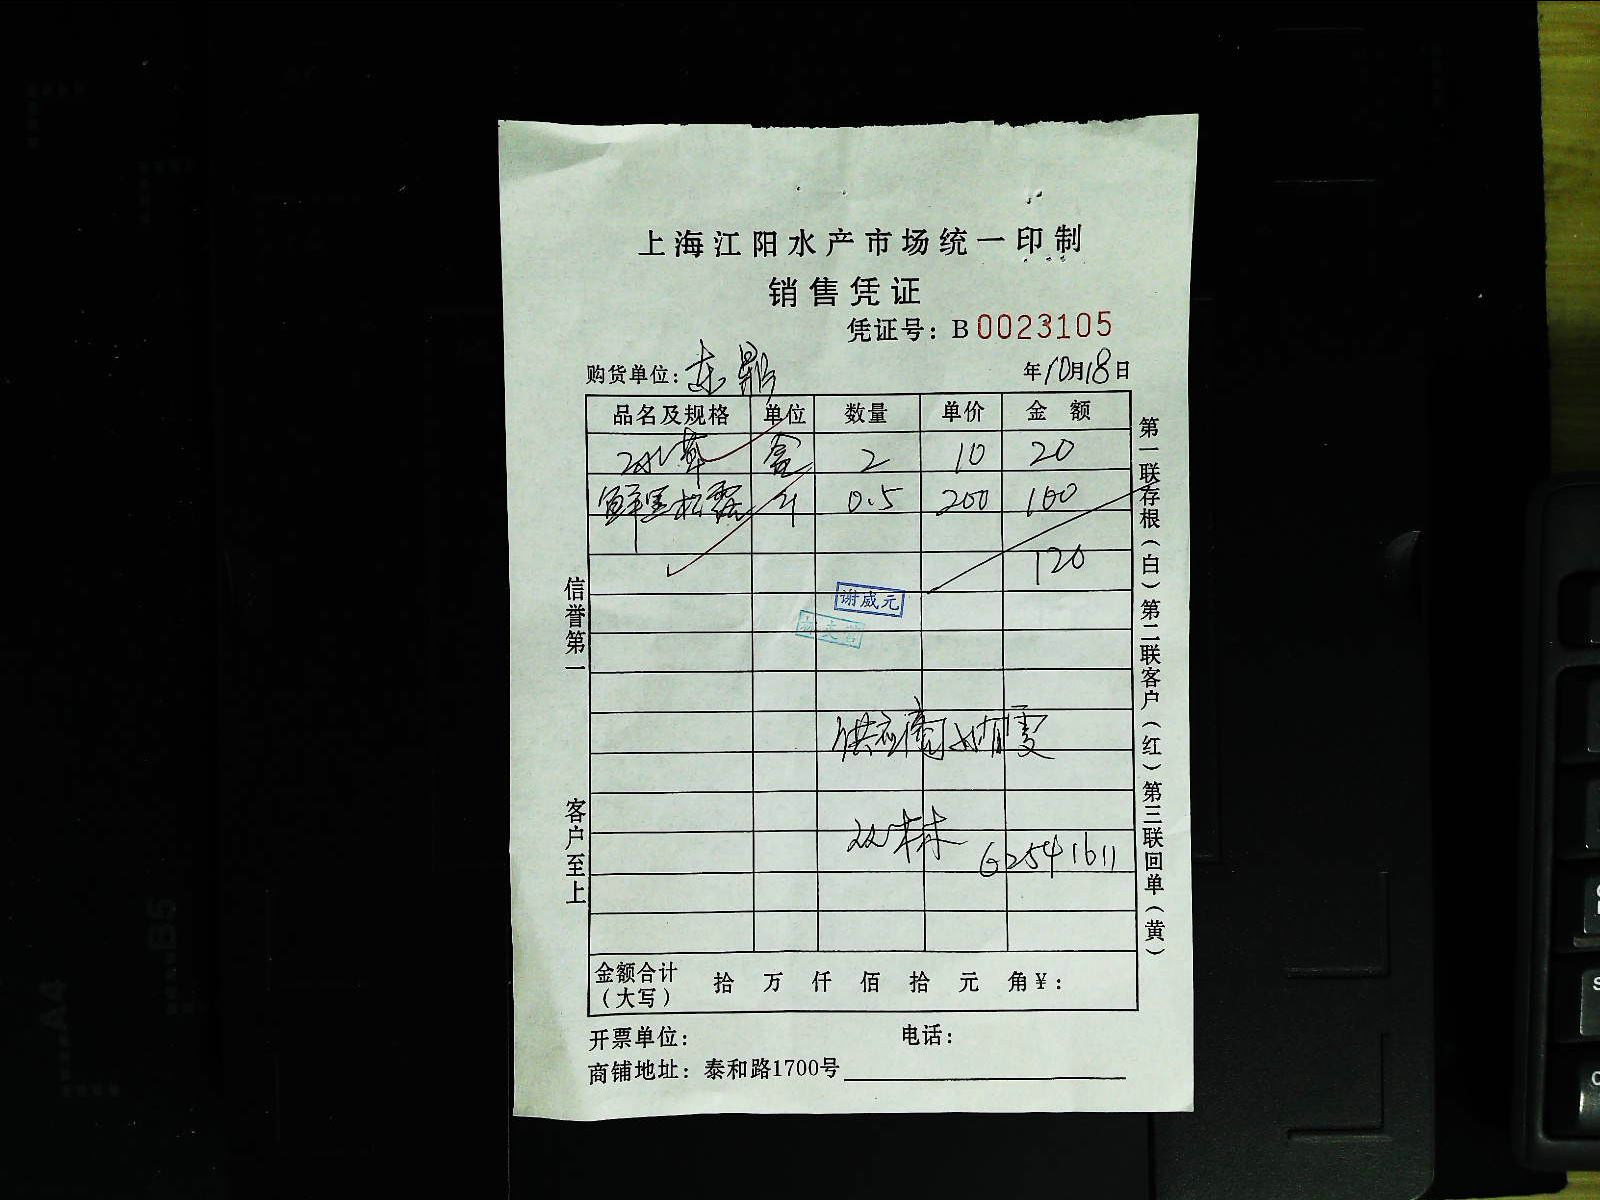 上海江阳水产市场统一印制
销售凭证
凭证号：B 0023105
购货单位：东鼎 年10月18日
品名及规格 单位 数量 单价 金额
盒 2 10 20
鲜黑松露 斤 0.5 200 100
120
谢威元
供应商
双林 62541611
金额合计（大写） 拾 万 仟 佰 拾 元 角 ¥：
开票单位： 电话：
商铺地址：泰和路1700号
信誉第一
客户至上
第一联存根（白）第二联客户（红）第三联回单（黄）